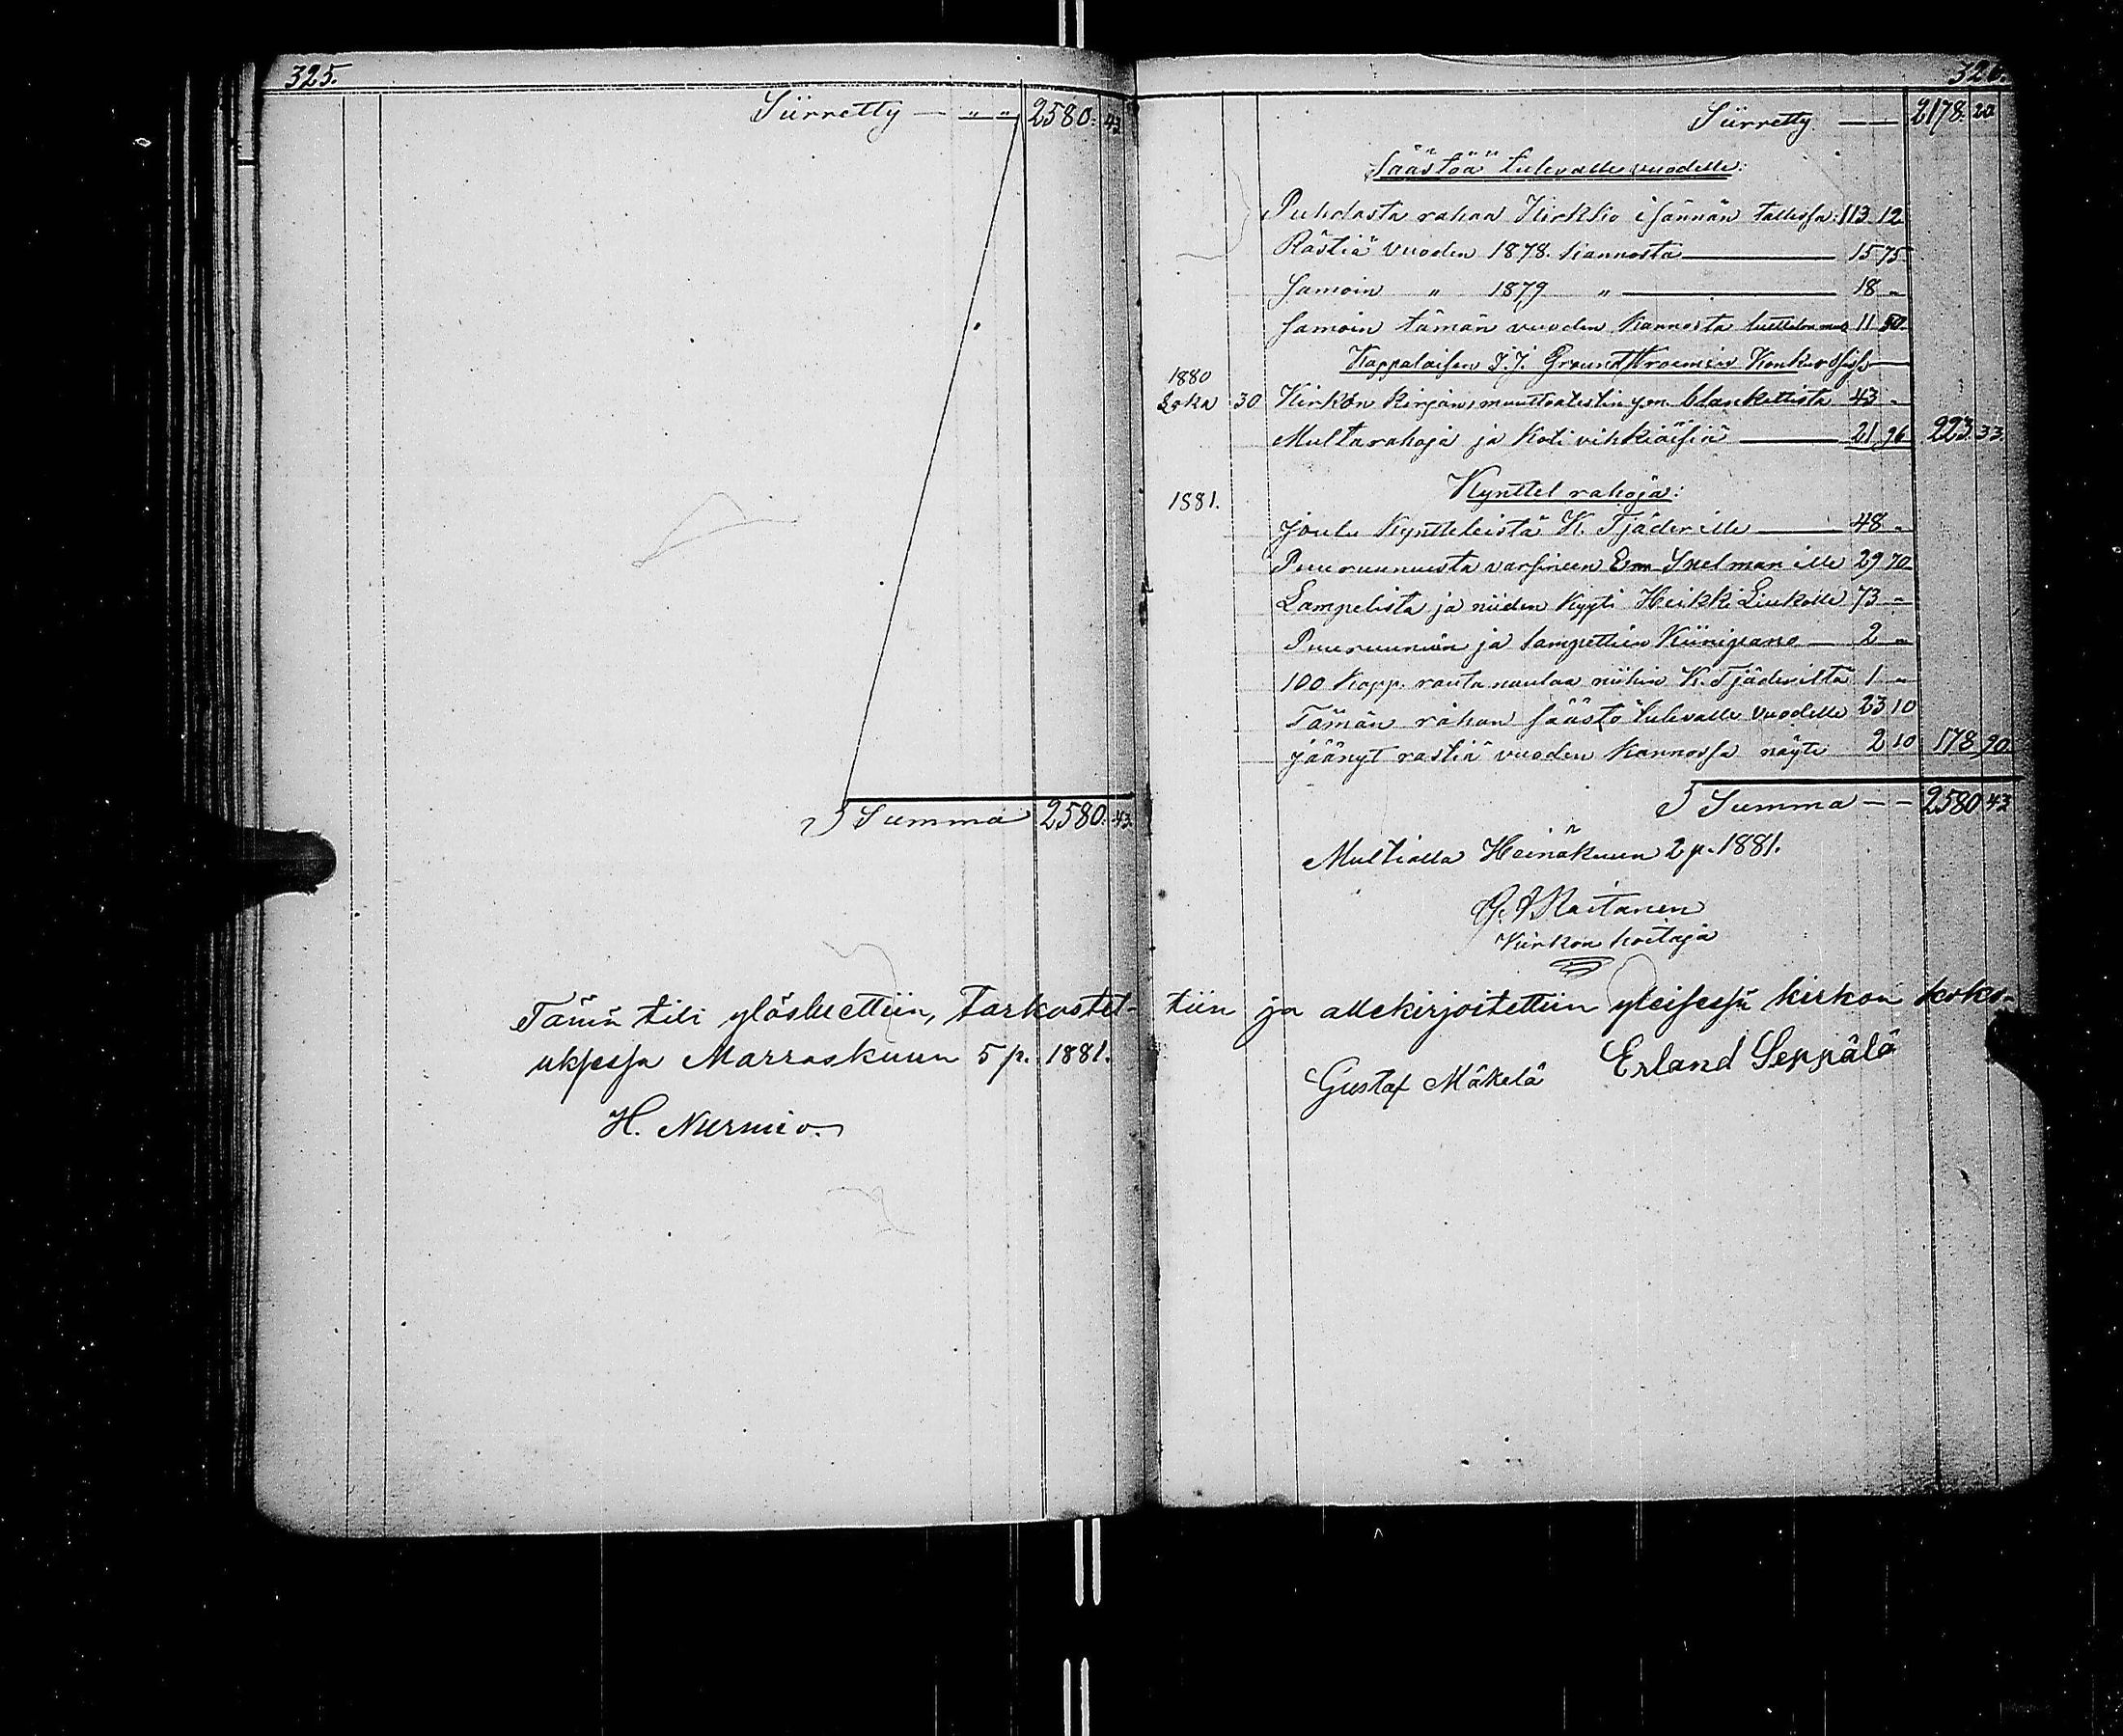 325.
Siirretty — „ „ 2580. 43
Summa 2580. 43.
Tämä tili ylösluettiin, tarkastet-
uksessa Marraskuun 5 p. 1881.
H. Nurmio.
326.
Siirretty — — 2178. 20
Säästöä tulevalle vuodelle:
Puhdasta rahaa Kirkko isännän tallessa: 113 12
Rästiä vuoden 1878. kannosta — 15 75
Samoin „ 1879 „ — 18 „
Samoin tämän vuoden Kannosta luettelon muk 11 50
Kappalaisen J. J. Konkurssissa —
1880
Loka 30 Kirkon kirjain, muuttoatestin y.m. blanketista 43 „
Multarahoja ja Koti vihkiäisiä — 21 96 223. 33
1881. Kynttel rahoja:
Joulu Kyntteleistä K. Tjäder ille — 48 „
Puuruunuista varsineen Em Snelman ille 29 70
Lampetista ja niiden kyyti Heikki Liukolle 73 „
Puuruunun ja lampettien Kiinipano — 2 „
100 Kapp. rauta naulaa niihin K. Tjäderiltä 1 „
Tämän rahan säästö tulevalle vuodelle 23 10
Jäänyt rästiä vuoden kannossa näyte 2 10 178 90
Summa — — 2580 43
Multialla Heinäkuun 2 p. 1881.
Raitanen
Kirkon hoitaja
tiin ja allekirjoitettiin yleisessä kirkon koko-
Gustaf Mäkelä Erland Seppälä